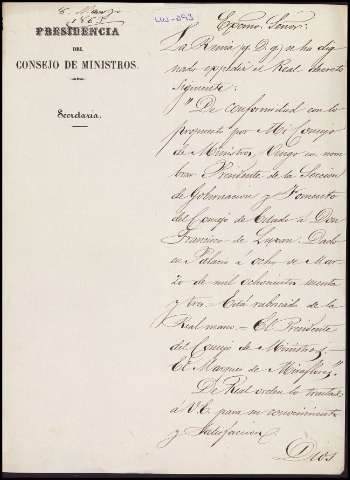 8 Marzo
1863
PRESIDENCIA
DEL
CONSEJO DE MINISTROS.
Secretaria.
Excmo. Señor:
La Reina (q. D. g.) se ha dig
nado expedir el Real decreto
siguiente:
"De conformidad con lo
propuesto por Mi Consejo
de Ministros, Vengo en nom
brar Presidente de la Seccion
de Gobernacion y Fomento
del Consejo de Estado á Don
Francisco de Luxan. Dado
en Palacio á ocho de Mar-
zo de mil ochocientos sesenta
y tres.= Está rubricado de la
Real mano.= El Presidente
del Consejo de Ministros.=
El Marques de Miraflores."
De Real orden lo traslado
á V.E. para su conocimiento
y satisfaccion.
Dios